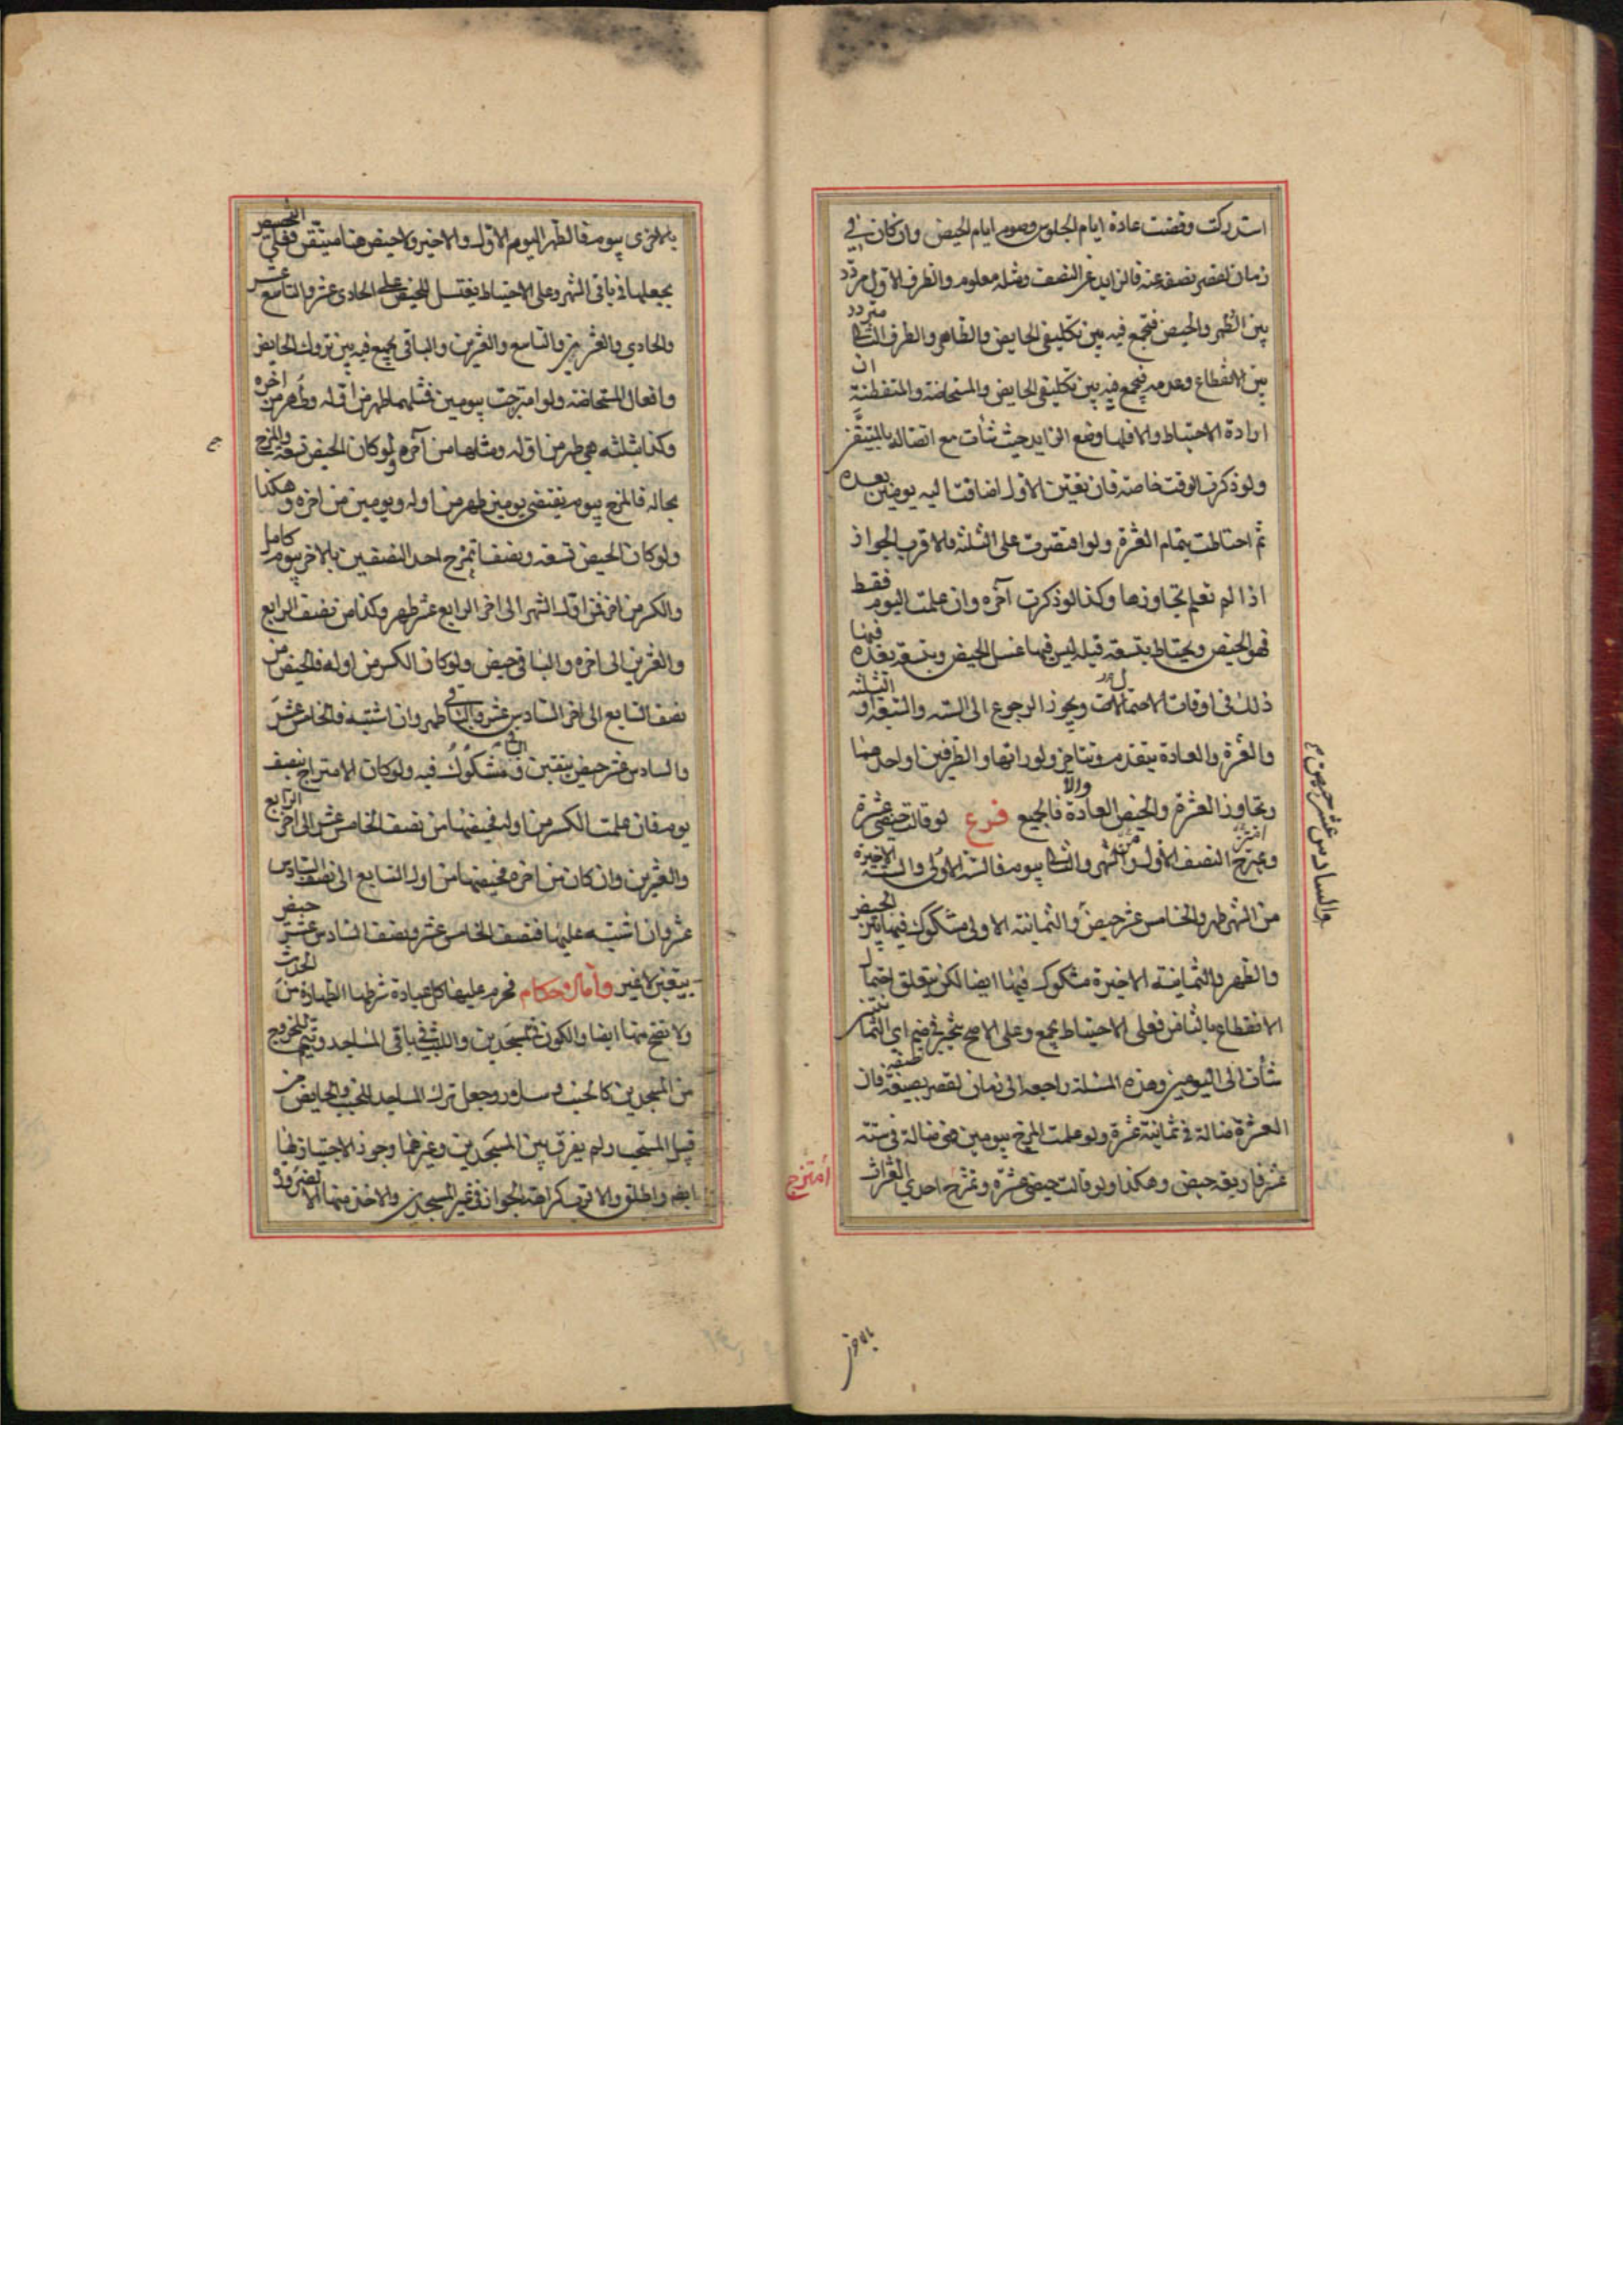 استدركت وقضت عادة ايام الجلوس وصوم ايام الحيض وان كان في
زمان لقصر نصفه عنه فالزايد عن النصف ومثله معلوم والطرف الاول متردد
بين الطهر والحيض فتجمع فيه بين تكليفى الحايض والطاهر والطرف الثانى متردد
بين الانقطاع وعدمه فيجمع فيه بين تكليفى الحايض والمستحاضة والمنقطعة ان
ارادة الاحتياط والا فلها وضع الزايد حيث شأت مع اتصاله بالمتيقن
ولو ذكرت الوقت خاصة فان تعين الاول اضافت اليه يومين بعده
ثم احتاطت بتمام العشرة ولو اقتصرت على الثلثة فالاقرب الجواز
اذا لم تعلم تجاوزها وكذا لو ذكرت آخره وان علمت اليوم فقط
فهو الحيض ويحتاط بتسعة قبله ليس فيها غسل الحيض وبتسعة بعده فيها
ذلك فى اوقات الاحتمالات ويجوز الرجوع الى الستة والسبعة او الثلثة
والعشرة والعادة يتقدم وتتاخر ولو راتها والطرفين او احدهما
وتجاوز العشرة والحيض العادة والا فالجميع فرع لو قالت حيضى عشرة
ويمتزج النصف الاول من الشهر والثانى بيوم فالستة الاولى والستة الاخيرة
من الشهر طهر والخامس عشر حيض والثمانية الاولى مشكوك فيها بين الحيض
والطهر والثمانية الاخيرة مشكوك فيها ايضا لكن يتعلق احتمال
الانقطاع بالثانى فعلى الاحتياط يجمع وعلى الاصح يتخير في ضم اي الثمانيتين
شأت الى اليومين وهذه المسئلة راجعة الى زمان لقصر نصفه فان
العشرة ضالة فى ثمانية عشرة ولو علمت المزج بيومين فهى ضالة فى ستة
عشر فاربعة حيض وهكذا ولو قالت حيضى عشرة وتمزج احدي العشرات
والسادس عشر حيض
امتزج
بالاخرى
بالاخرى بيوم فالطهر اليوم الاول والاخير ولا حيض هنا متيقن فعلى التخصيص
يجعلها فى باقى الشهر وعلى الاحتياط يغتسل للحيض على الحادى عشر والتاسع عشر
والحادي والعشرين والتاسع والعشرين والباقى يجمع فيه بين تروك الحايض
وافعال المستحاضة ولو امتزجت بيومين فمثلهما طهر من اوله وطهر من اخره
وكذا بثلثة هي طهر من اوله ومثلها من آخره ولو كان الحيض تسعة والمزج
بحاله فالمزج بيوم يقتضى يومين طهر من اوله ويومين من اخره وهكذا
ولو كان الحيض تسعة ونصفا تمزج احد النصفين بالاخر بيوم كامل
والكسر من اخره فمن اول الشهر الى اخر الرابع عشر طهر وكذا من نصف الرابع
والعشرين الى اخره والباقى حيض ولو كان الكسر من اوله فالحيض من
نصف السابع الى اخر السادس عشر والباقى طهر وان اشتبه فالخامس عشر
والسادس عشر حيض بيقين والباقى مشكوك فيه ولو كان الامتزاج بنصف
يوم فان علمت الكسر من اوله فحيضها من نصف الخامس عشر الى اخر الرابع
والعشرين وان كان من اخره فحيضها من اول السابع الى نصف السادس
عشر وان اشتبه عليها فنصف الخامس عشر ونصف السادس عشر حيض
بيقين لا غير واما الاحكام فحرم عليها كل عبادة شرطها الطهارة من الحدث
ولا تصح منها ايضا والكون فى المسجدين واللبث في باقى المساجد وتيمم للخروج
من المسجدين كالجنب وسلار وجعل ترك المساجد للجنب والحايض من
قبيل المستحب ولم يفرق بين المسجدين وغيرهما وجوز الاجتياز لها
ايضا واطلق والاقرب كراهة الجواز فى غير المسجدين والاخذ منها الا لضرورة